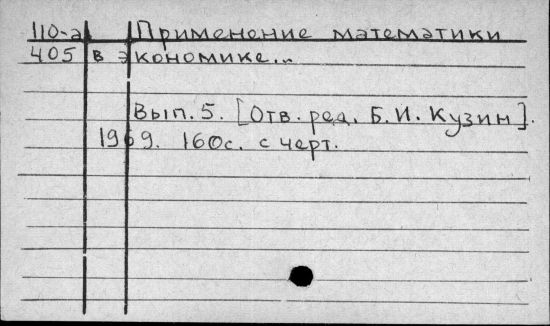 110-а Применение математики
405 в экономике...
Вып. 5. [Отв. ред. Б. И. Кузин].
1969. 160с. с черт.